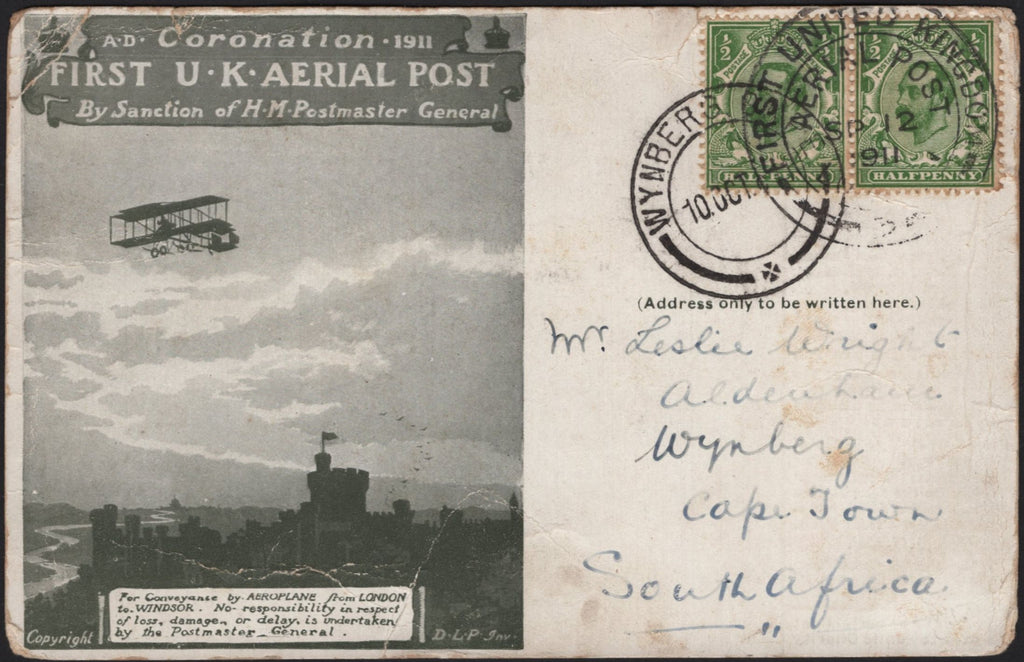 A·D· Coronation · 1911
FIRST U·K·AERIAL POST
By Sanction of H·M·Postmaster General
For Conveyance by AEROPLANE from LONDON
to WINDSOR. No responsibility in respect
of loss, damage, or delay, is undertaken
by the Postmaster General.
Copyright
D·L·P·Inv·
½
½
HALFPENNY
HALFPENNY
FIRST UNITED KINGDOM
AERIAL POST
SP 12
1911
WYNBERG
10.OCT
(Address only to be written here.)
Mr. Leslie Wright
Aldenham
Wynberg
Cape Town
South Africa